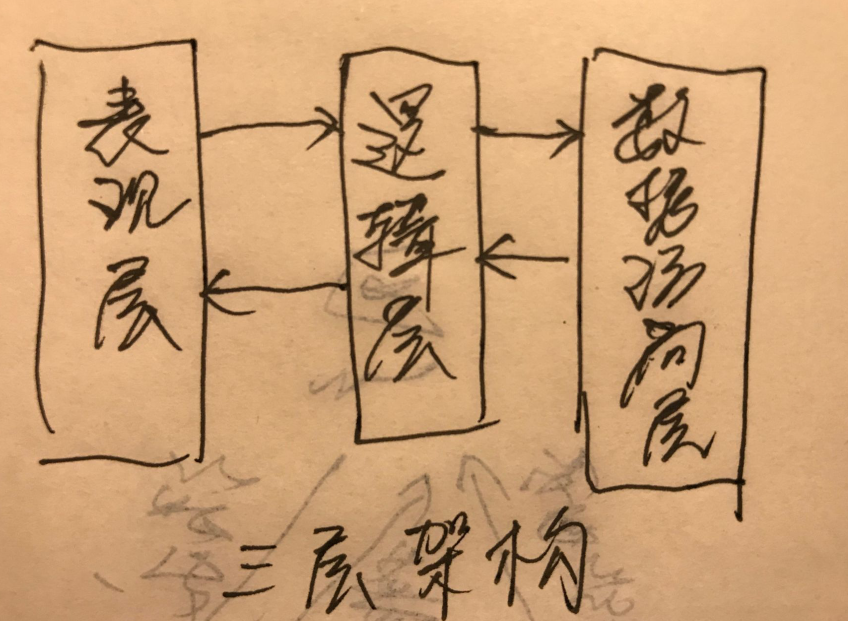 表现层
逻辑层
数据访问层
三层架构